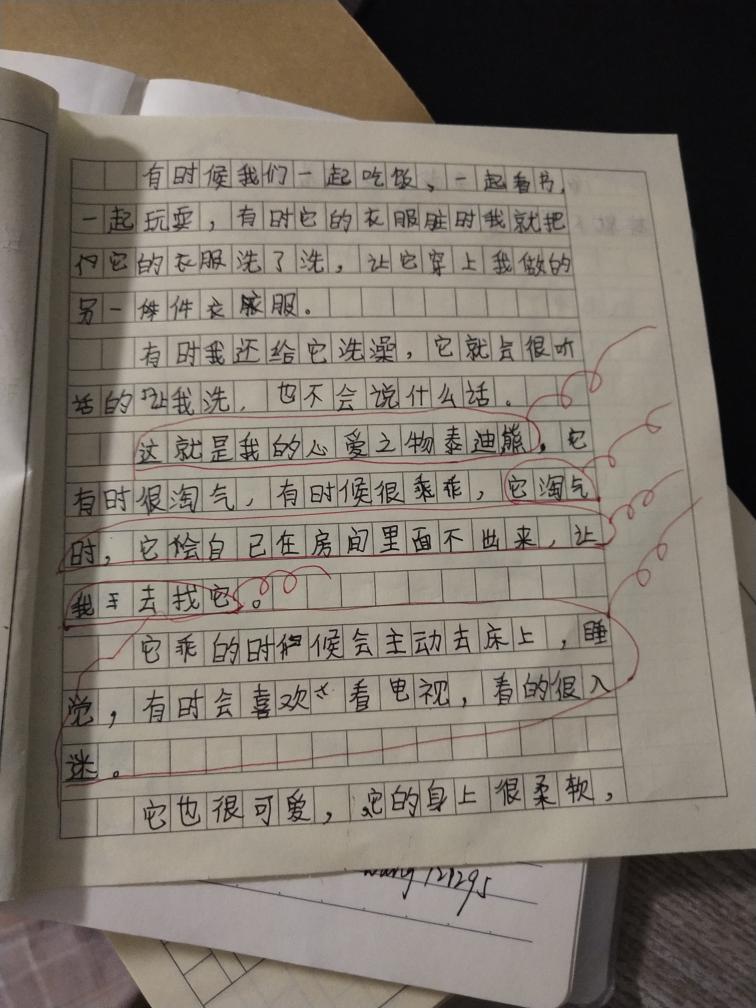 有时候我们一起吃饭，一起看书，
一起玩耍，有时它的衣服脏时我就把
它的衣服洗了洗，让它穿上我做的
另一件衣服。
有时我还给它洗澡，它就会很听
话的让我洗，也不会说什么话。
这就是我的心爱之物泰迪熊。它
有时很淘气，有时候很乖乖，它淘气
时，它会自己在房间里面不出来，让
我去找它。
它乖的时候会主动去床上，睡
觉，有时会喜欢看电视，看的很入
迷。
它也很可爱，它的身上很柔软，